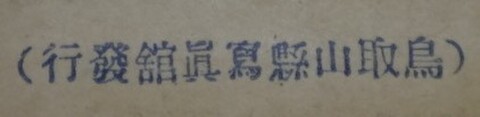 (鳥取山縣寫眞舘發行)